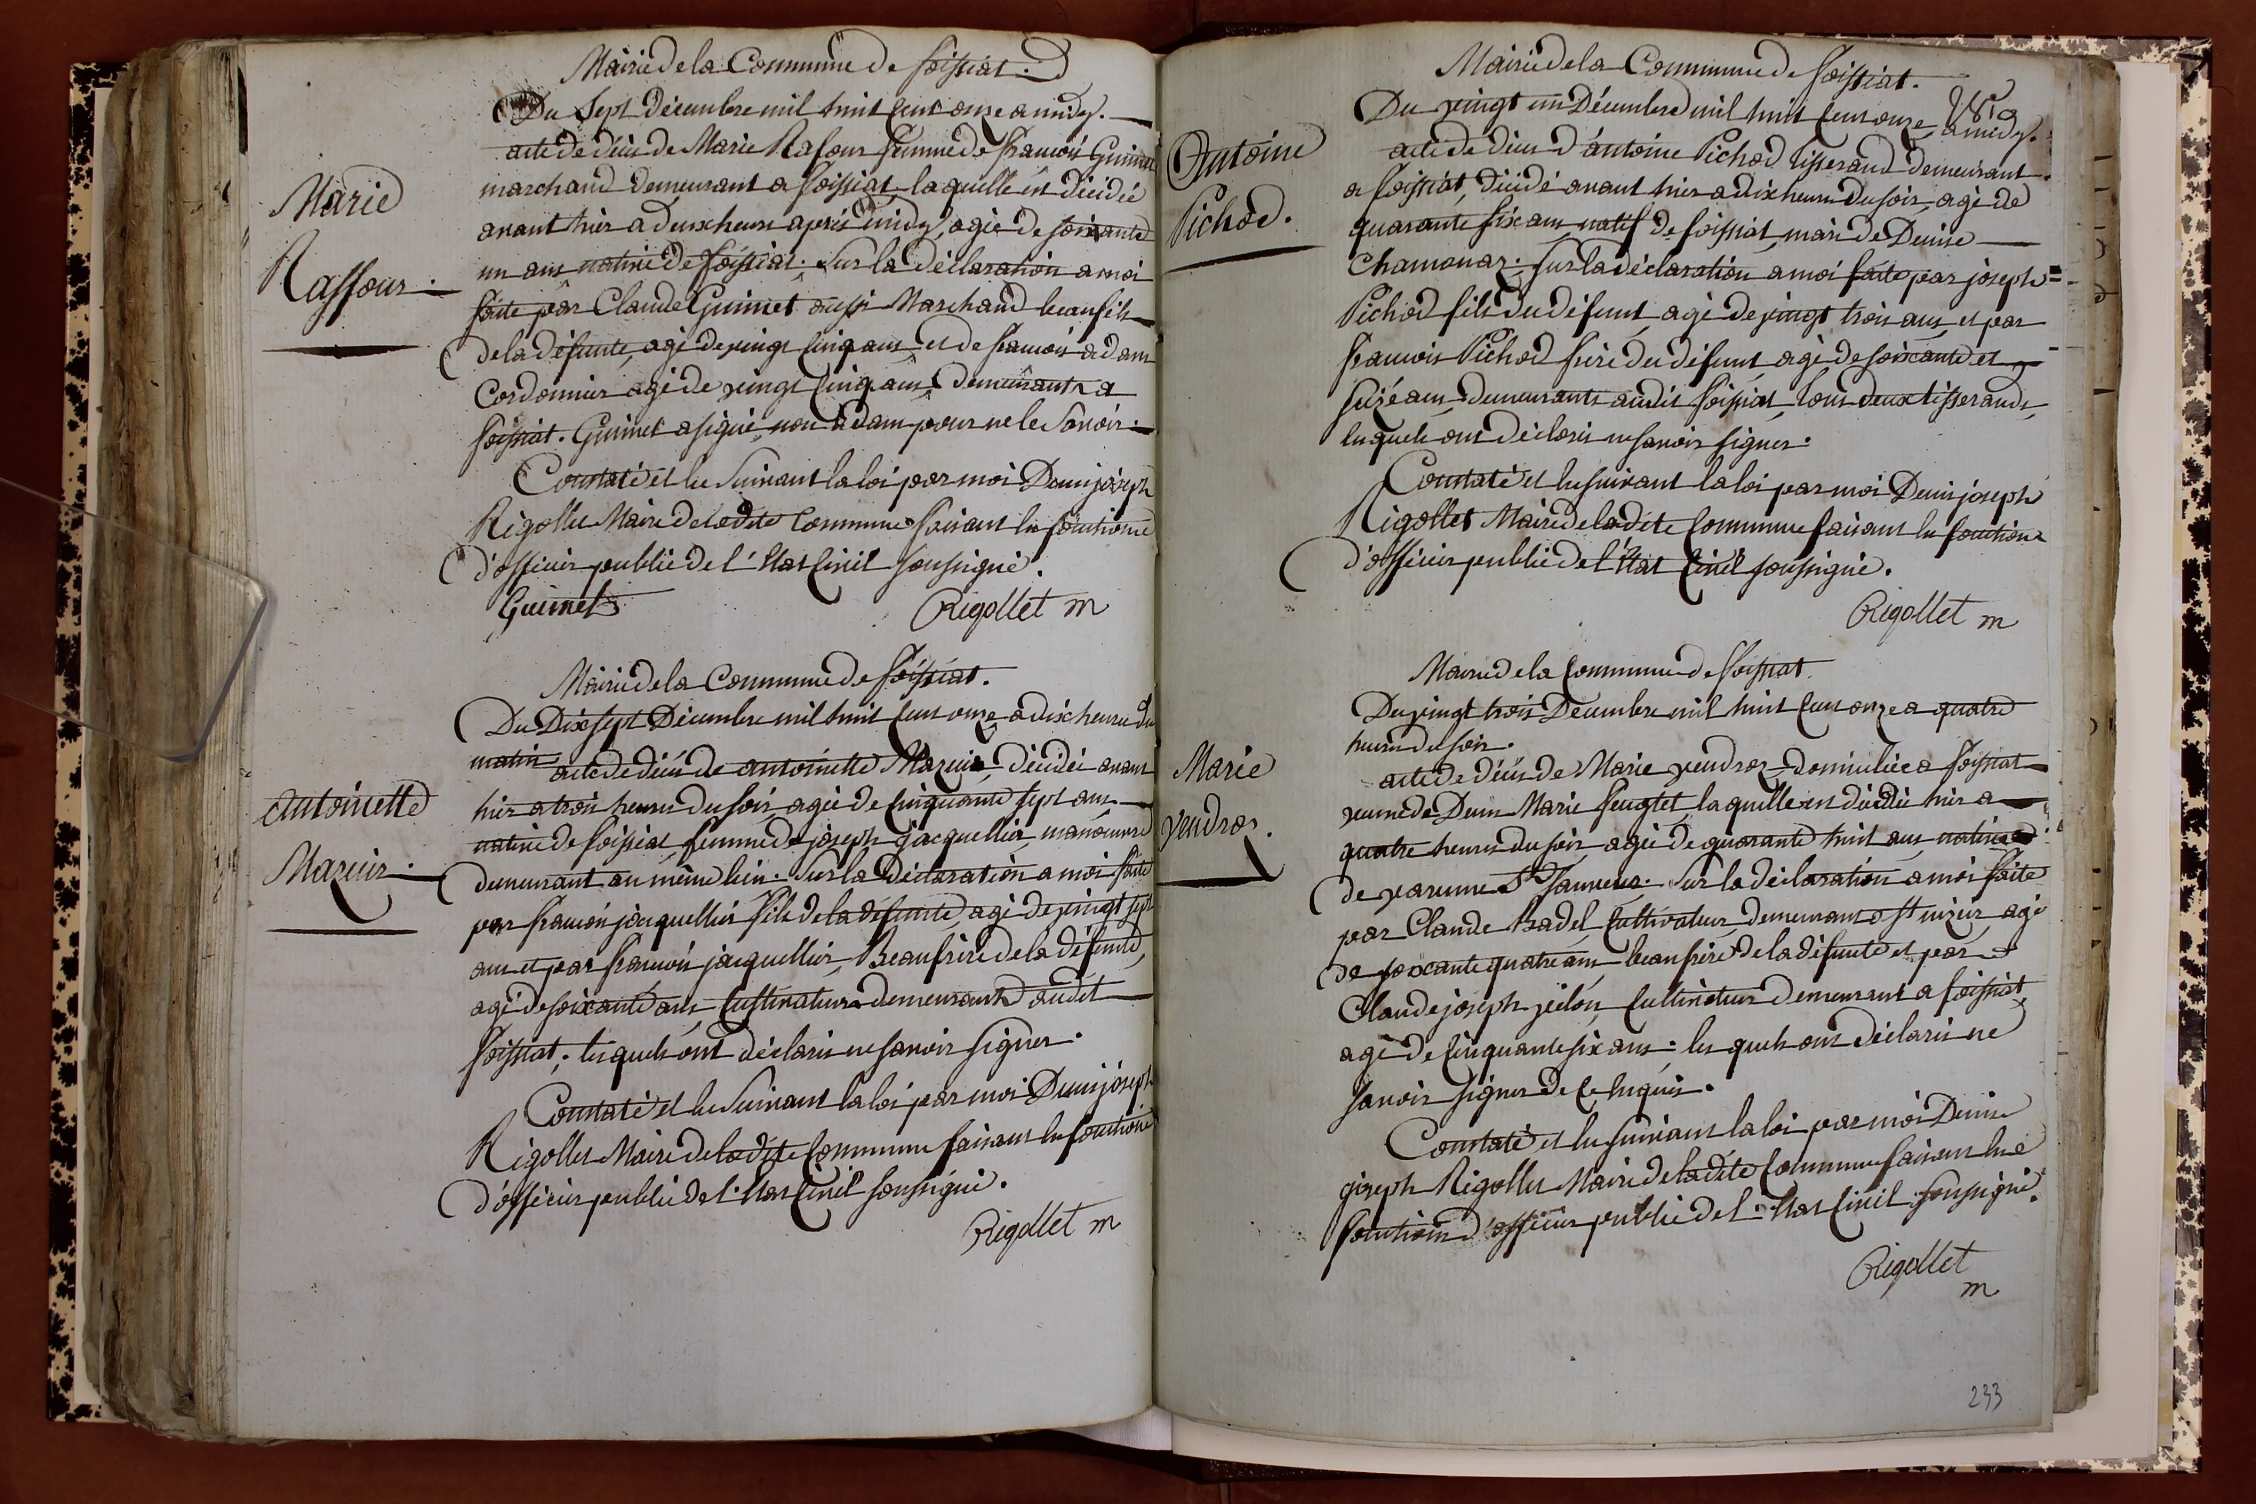 Mairie de la Commune de foissiat.
Du Sept Décembre mil huit Cent onze a midy.
acte de décès de Marie Rafour femme de francois Guimet
marchand demeurant a foissiat, laquelle est décédée
avant hier a deux heures après midy, agée de soixante
un ans native de foissiat. Sur la déclaration a moi
faite par Claude Guimet aussi Marchand beaufils
de la défunte, agé de vingt Cinq ans, et de francois adam
Cordonnier agé de vingt Cinq ans, demeurants a
foissiat. Guimet a signé, non adam pour ne le savoir.
Constaté et lu Suivant la loi par moi Denis joseph
Rigollet Maire de ladite Commune faisant les fonctions
d'officier public de l'Etat Civil soussigné.
Guimet
Rigollet m
Marie
Raffour.
Mairie de la Commune de foissiat.
Du Dix sept Décembre mil huit Cent onze a dix heures du
matin
acte de décès de antoinette Mareir, décédée avant
hier a trois heures du soir, agée de Cinquante sept ans
native de foissiat femme de joseph jacquellier, manoeuvre
demeurant au même lieu. Sur la déclaration a moi faite
par francois jacquellier fils de la défunte, agé de vingt sept
ans et par francois jacquellier, Beaufrère de la défunte,
agé de soixante ans Cultivateurs demeurants audit
foissiat. lesquels ont déclaré ne savoir signer.
Constaté et lu Suivant la loi par moi Denis joseph
Rigollet Maire de ladite Commune faisant les fonctions
d'officier public de l'Etat Civil soussigné.
Rigollet m
Antoinette
Mareir.
Mairie de la Commune de foissiat.
Du vingt un Décembre mil huit Cent onze, a midy.
acte de décès d'antoine Pichod tisserand demeurant
a foissiat, décédé avant hier a dix heures du soir, agé de
quarante six ans, natif de foissiat, mari de Denise
Chamonar. Sur la déclaration a moi faite par joseph
Pichod fils du défunt, agé de vingt trois ans, et par
francois Pichod frère du défunt agé de soixante et
seize ans, demeurants audit foissiat, tous deux tisserands,
lesquels ont déclaré ne savoir signer.
Constaté et lu suivant la loi par moi Denis joseph
Rigollet Maire de ladite Commune faisant les fonctions
d'officier public de l'Etat Civil soussigné.
Rigollet m
Antoine
Pichod.
Mairie de la Commune de foissiat.
Du vingt trois Décembre mil huit Cent onze a quatre
heures du soir.
acte de décès de Marie vendrer, domiciliée a foissiat
veuve de Denis Marie feuglet, laquelle est décédée hier a
quatre heures du soir, agée de quarante huit ans, native
de varenne St Sauveur. Sur la déclaration a moi faite
par Claude Badel Cultivateur, demeurant a St nizier, agé
de soixante quatre ans beaufrère de la défunte et par
Claude joseph Cultivateur demeurant a foissiat,
agé de Cinquante six ans. lesquels ont déclaré ne
savoir signer de Ce enquis.
Constaté et lu suivant la loi par moi Denis
joseph Rigollet Maire de ladite Commune faisant les
fonctions d'officier public de l'Etat Civil soussigné.
Rigollet
m
Marie
vendrer.
233